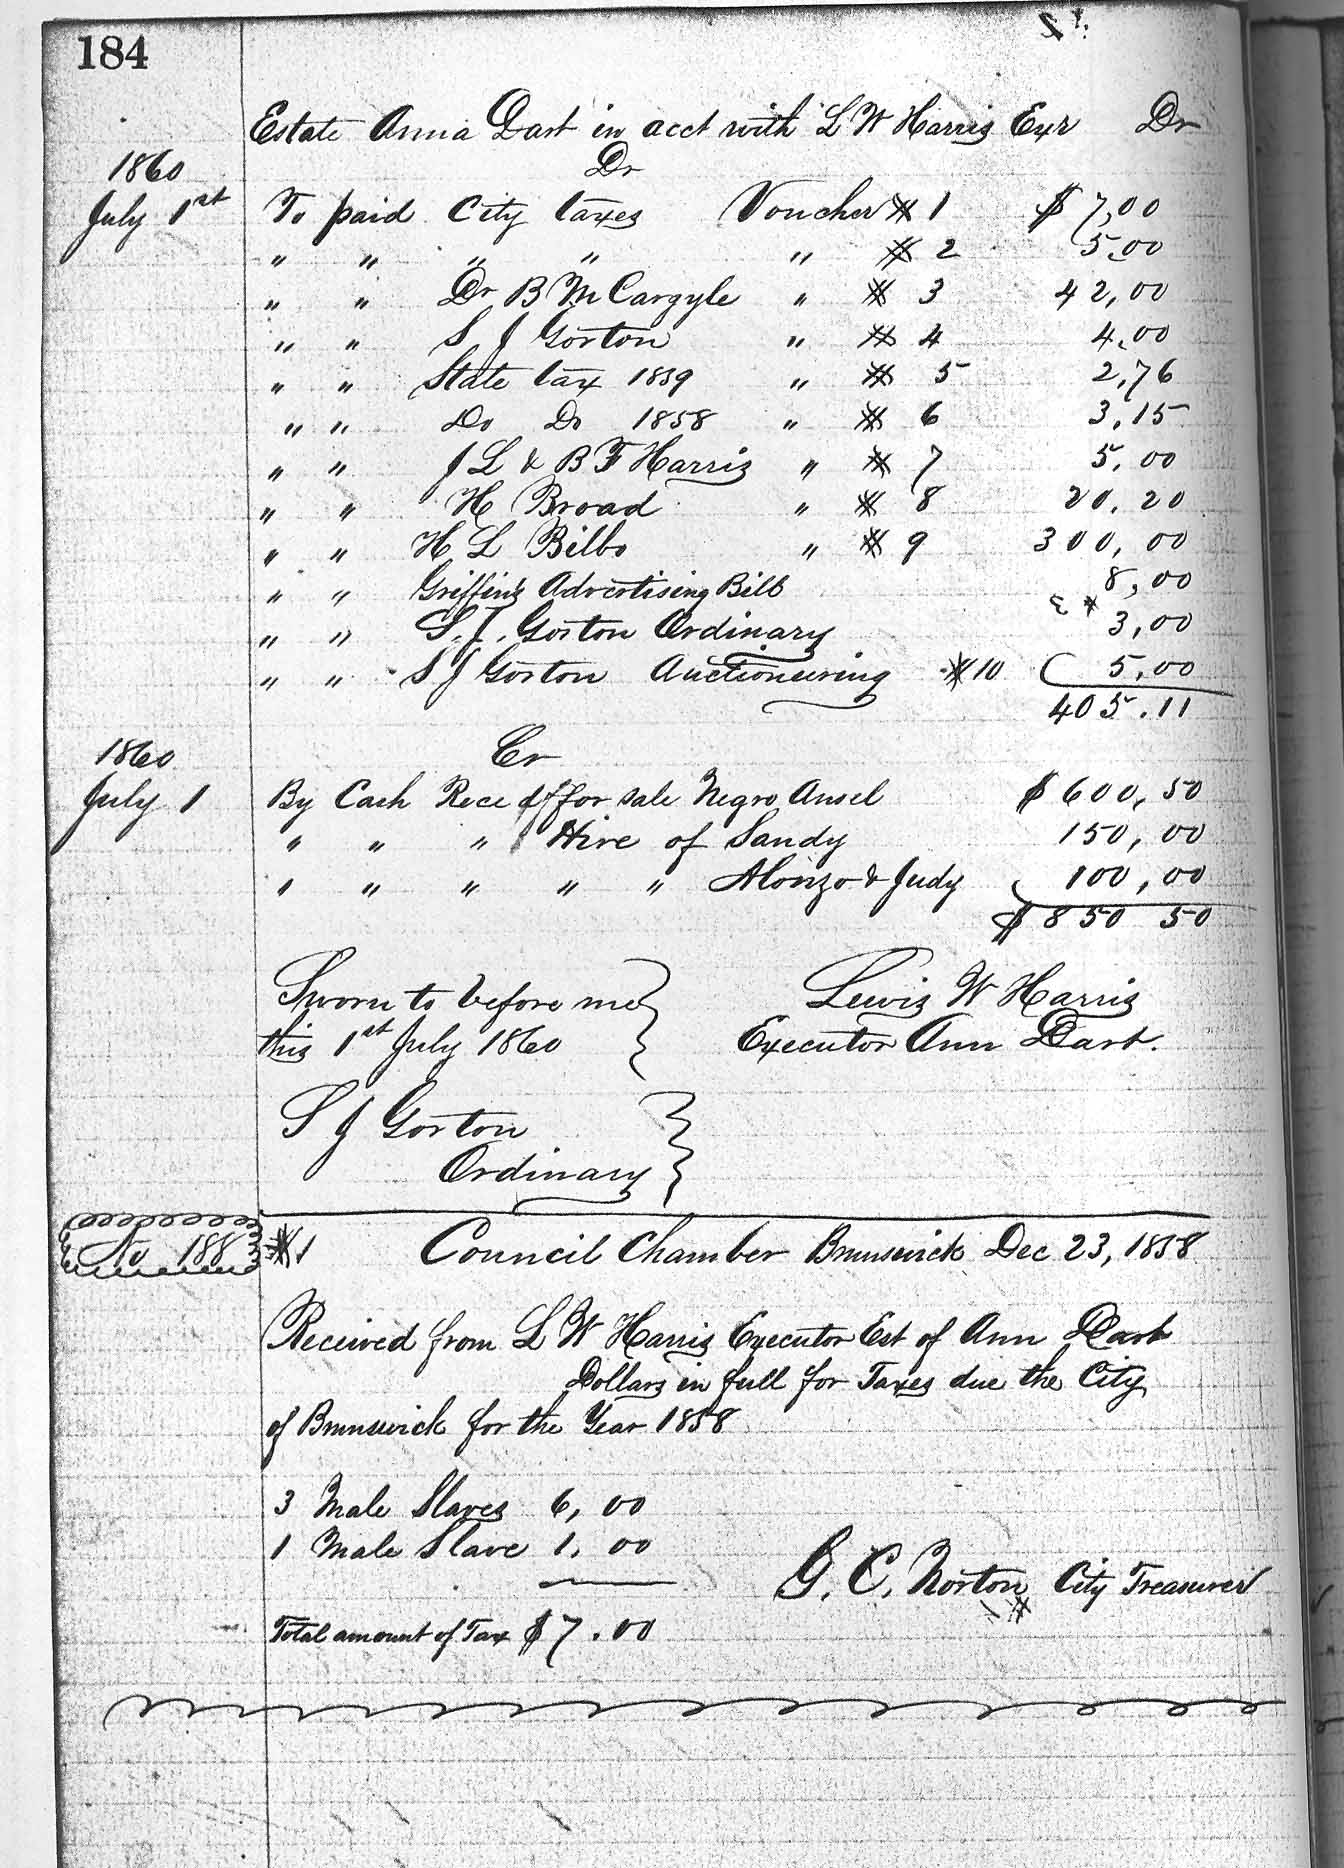 184
Estate Anna Dart in acct with L W Harris Exr Dr
1860 Dr
July 1st To paid City taxes Voucher # 1 $ 7,00
" " " " " # 2 5.00
" " Dr B M Cargyle " # 3 42,00
" " S J Gorton " # 4 4,00
" " State tax 1859 " # 5 2,76
" " Do Do 1858 " # 6 3,15
" " J L & B F Harris " # 7 5,00
" " H Broad " # 8 20,20
" " H L Bilbo " # 9 300,00
" " Griffin's Advertising Bill 8,00
" " S. J. Gorton Ordinary 3,00
" " S J Gorton Auctioneering #10 5,00
405.11
1860 Cr
July 1 By Cash Reced for sale Negro Ansel $ 600,50
" " " Hire of Sandy 150,00
" " " " " Alonzo & Judy 100,00
$ 850 50
Sworn to before me Lewis W Harris
this 1st July 1860 Executor Ann Dart.
S J Gorton
Ordinary
No 188 #1 Council Chamber Brunswick Dec 23, 1858
Received from L W Harris Executor Est of Ann Dart
Dollars in full for Taxes due the City
of Brunswick for the Year 1858
3 Male Slaves 6,00
1 Male Slave 1.00
G. C. Norton City Treasurer
Total amount of Tax $7.00